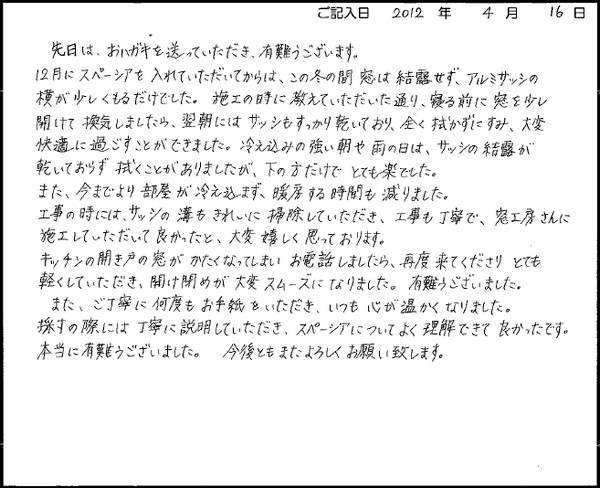 ご記入日 2012 年 4 月 16 日
先日は、おハガキを送っていただき、有難うございます。
12月にスペーシアを入れていただいてからは、この冬の間 窓は結露せず、アルミサッシの
横が少しくもるだけでした。 施工の時に教えていただいた通り、寝る前に窓を少し
開けて換気しましたら、翌朝にはサッシもすっかり乾いており、全く拭かずにすみ、大変
快適に過ごすことができました。冷え込みの強い朝や雨の日は、サッシの結露が
乾いておらず 拭くことがありましたが、下の方だけで とても楽でした。
また、今までより部屋が冷え込まず、暖房する時間も減りました。
工事の時には、サッシの溝もきれいに掃除していただき、工事も丁寧で、窓工房さんに
施工していただいて良かったと、大変嬉しく思っております。
キッチンの開き戸の窓がかたくなってしまい お電話しましたら、再度来てくださり とても
軽くしていただき、開け閉めが大変スムーズになりました。 有難うございました。
また、ご丁寧に何度もお手紙をいただき、いつも心が温かくなりました。
採寸の際には丁寧に説明していただき、スペーシアについてよく理解できて良かったです。
本当に有難うございました。 今後ともまたよろしくお願い致します。